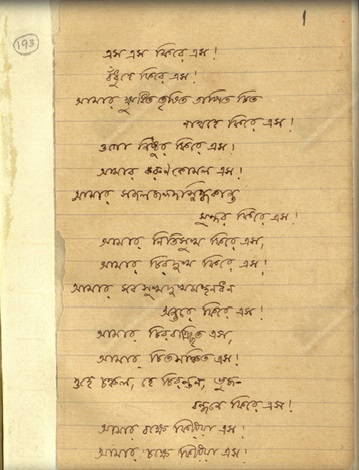 193
1
এস এস ফিরে এস!
বঁধুহে ফিরে এস!
আমার ক্ষুধিত তৃষিত তাপিত চিত
নাথহে ফিরে এস!
ওগো নিষ্ঠুর ফিরে এস!
আমার করুণকোমল এস!
আমার সজলজলদস্নিগ্ধকান্ত
সুন্দর ফিরে এস!
আমার নিতিসুখ ফিরে এস,
আমার চিরদুখ ফিরে এস!
আমার সবসুখদুখমন্থনধন
অন্তরে ফিরে এস!
আমার চিরবাঞ্ছিত এস,
আমার চিতসঞ্চিত এস!
ওহে চঞ্চল, হে চিরন্তন, ভুজ-
বন্ধনে ফিরে এস!
আমার বক্ষে ফিরিয়া এস!
আমার চক্ষে ফিরিয়া এস!